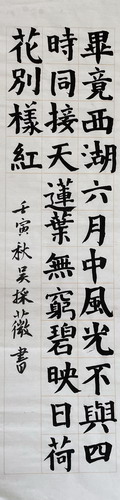 畢竟西湖六月中風光不與四
時同接天蓮葉無窮碧映日荷
花別樣紅
壬寅秋吴採薇書